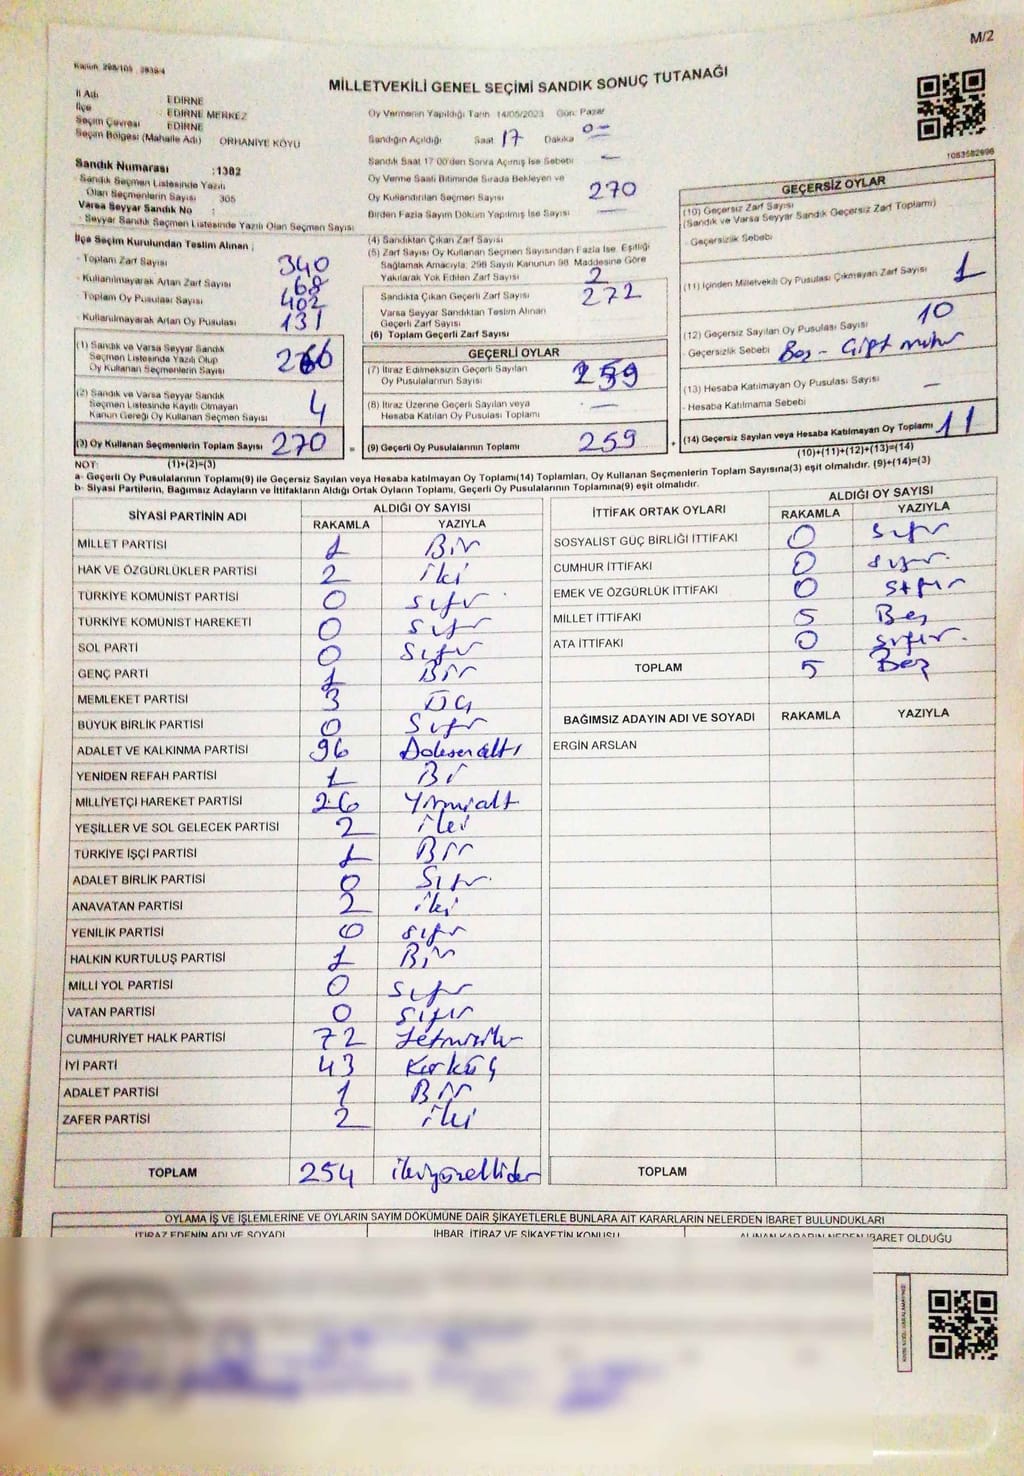 M/2
MİLLETVEKİLİ GENEL SEÇİMİ SANDIK SONUÇ TUTANAĞI
İl Adı : EDİRNE
İlçe : EDİRNE MERKEZ
Seçim Çevresi : EDİRNE
Seçim Bölgesi (Mahalle Adı) ORHANİYE KÖYÜ
Sandık Numarası :1382
Sandık Seçmen Listesinde Yazılı
Olan Seçmenlerin Sayısı : 305
Varsa Seyyar Sandık No :
Seyyar Sandık Seçmen Listesinde Yazılı Olan Seçmen Sayısı :
Oy Vermenin Yapıldığı Tarih 14/05/2023 Gün: Pazar
Sandığın Açıldığı Saat 17 Dakika 0 —
Sandık Saat 17:00'den Sonra Açılmış İse Sebebi —
Oy Verme Saati Bitiminde Sırada Bekleyen ve
Oy Kullandırılan Seçmen Sayısı 270
Birden Fazla Sayım Döküm Yapılmış İse Sayısı —
1083582696
İlçe Seçim Kurulundan Teslim Alınan ;
- Toplam Zarf Sayısı 340
- Kullanılmayarak Artan Zarf Sayısı 68
- Toplam Oy Pusulası Sayısı 402
- Kullanılmayarak Artan Oy Pusulası 131
(1) Sandık ve Varsa Seyyar Sandık
Seçmen Listesinde Yazılı Olup
Oy Kullanan Seçmenlerin Sayısı 266
(2) Sandık ve Varsa Seyyar Sandık
Seçmen Listesinde Kayıtlı Olmayan
Kanun Gereği Oy Kullanan Seçmen Sayısı 4
(3) Oy Kullanan Seçmenlerin Toplam Sayısı 270
(4) Sandıktan Çıkan Zarf Sayısı
(5) Zarf Sayısı Oy Kullanan Seçmen Sayısından Fazla İse, Eşitliği
Sağlamak Amacıyla, 298 Sayılı Kanunun 98. Maddesine Göre
Yakılarak Yok Edilen Zarf Sayısı 2
Sandıkta Çıkan Geçerli Zarf Sayısı 272
Varsa Seyyar Sandıktan Teslim Alınan
Geçerli Zarf Sayısı
(6) Toplam Geçerli Zarf Sayısı
GEÇERLİ OYLAR
(7) İtiraz Edilmeksizin Geçerli Sayılan
Oy Pusulalarının Sayısı 259
(8) İtiraz Üzerine Geçerli Sayılan veya
Hesaba Katılan Oy Pusulası Toplamı —
= (9) Geçerli Oy Pusulalarının Toplamı 259 +
GEÇERSİZ OYLAR
(10) Geçersiz Zarf Sayısı
(Sandık ve Varsa Seyyar Sandık Geçersiz Zarf Toplamı)
- Geçersizlik Sebebi
(11) İçinden Milletvekili Oy Pusulası Çıkmayan Zarf Sayısı 1
(12) Geçersiz Sayılan Oy Pusulası Sayısı 10
Geçersizlik Sebebi Boş - Çift mühür
(13) Hesaba Katılmayan Oy Pusulası Sayısı —
- Hesaba Katılmama Sebebi
(14) Geçersiz Sayılan veya Hesaba Katılmayan Oy Toplamı 11
NOT: (1)+(2)=(3)
(10)+(11)+(12)+(13)=(14)
a- Geçerli Oy Pusulalarının Toplamı(9) ile Geçersiz Sayılan veya Hesaba Katılmayan Oy Toplamı(14) Toplamları, Oy Kullanan Seçmenlerin Toplam Sayısına(3) eşit olmalıdır. (9)+(14)=(3)
b- Siyasi Partilerin, Bağımsız Adayların ve İttifakların Aldığı Ortak Oyların Toplamı, Geçerli Oy Pusulalarının Toplamına(9) eşit olmalıdır.
SİYASİ PARTİNİN ADI
ALDIĞI OY SAYISI
RAKAMLA YAZIYLA
MİLLET PARTİSİ 1 Bir
HAK VE ÖZGÜRLÜKLER PARTİSİ 2 iki
TÜRKİYE KOMÜNİST PARTİSİ 0 sıfır
TÜRKİYE KOMÜNİST HAREKETİ 0 sıfır
SOL PARTİ 0 Sıfır
GENÇ PARTİ 1 Bir
MEMLEKET PARTİSİ 3 Üç
BÜYÜK BİRLİK PARTİSİ 0 Sıfır
ADALET VE KALKINMA PARTİSİ 96 Doksanaltı
YENİDEN REFAH PARTİSİ 1 Bi
MİLLİYETÇİ HAREKET PARTİSİ 26 Yirmialt
YEŞİLLER VE SOL GELECEK PARTİSİ 2 iki
TÜRKİYE İŞÇİ PARTİSİ 1 Bir
ADALET BİRLİK PARTİSİ 0 Sıfır
ANAVATAN PARTİSİ 2 iki
YENİLİK PARTİSİ 0 sıfır
HALKIN KURTULUŞ PARTİSİ 1 Bir
MİLLİ YOL PARTİSİ 0 sıfır
VATAN PARTİSİ 0 sıfır
CUMHURİYET HALK PARTİSİ 72 Yetmişiki
İYİ PARTİ 43 Kırküç
ADALET PARTİSİ 1 Bir
ZAFER PARTİSİ 2 iki
TOPLAM 254 ikiyüzellidör
İTTİFAK ORTAK OYLARI
ALDIĞI OY SAYISI
RAKAMLA YAZIYLA
SOSYALİST GÜÇ BİRLİĞİ İTTİFAKI 0 sıfır
CUMHUR İTTİFAKI 0 sıfır
EMEK VE ÖZGÜRLÜK İTTİFAKI 0 sıfır
MİLLET İTTİFAKI 5 Beş
ATA İTTİFAKI 0 sıfır.
TOPLAM 5 Beş
BAĞIMSIZ ADAYIN ADI VE SOYADI RAKAMLA YAZIYLA
ERGİN ARSLAN
TOPLAM
OYLAMA İŞ VE İŞLEMLERİNE VE OYLARIN SAYIM DÖKÜMÜNE DAİR ŞİKAYETLERLE BUNLARA AİT KARARLARIN NELERDEN İBARET BULUNDUKLARI
İTİRAZ EDENİN ADI VE SOYADI İHBAR, İTİRAZ VE ŞİKAYETİN KONUSU ALINAN KARARIN NEDEN İBARET OLDUĞU